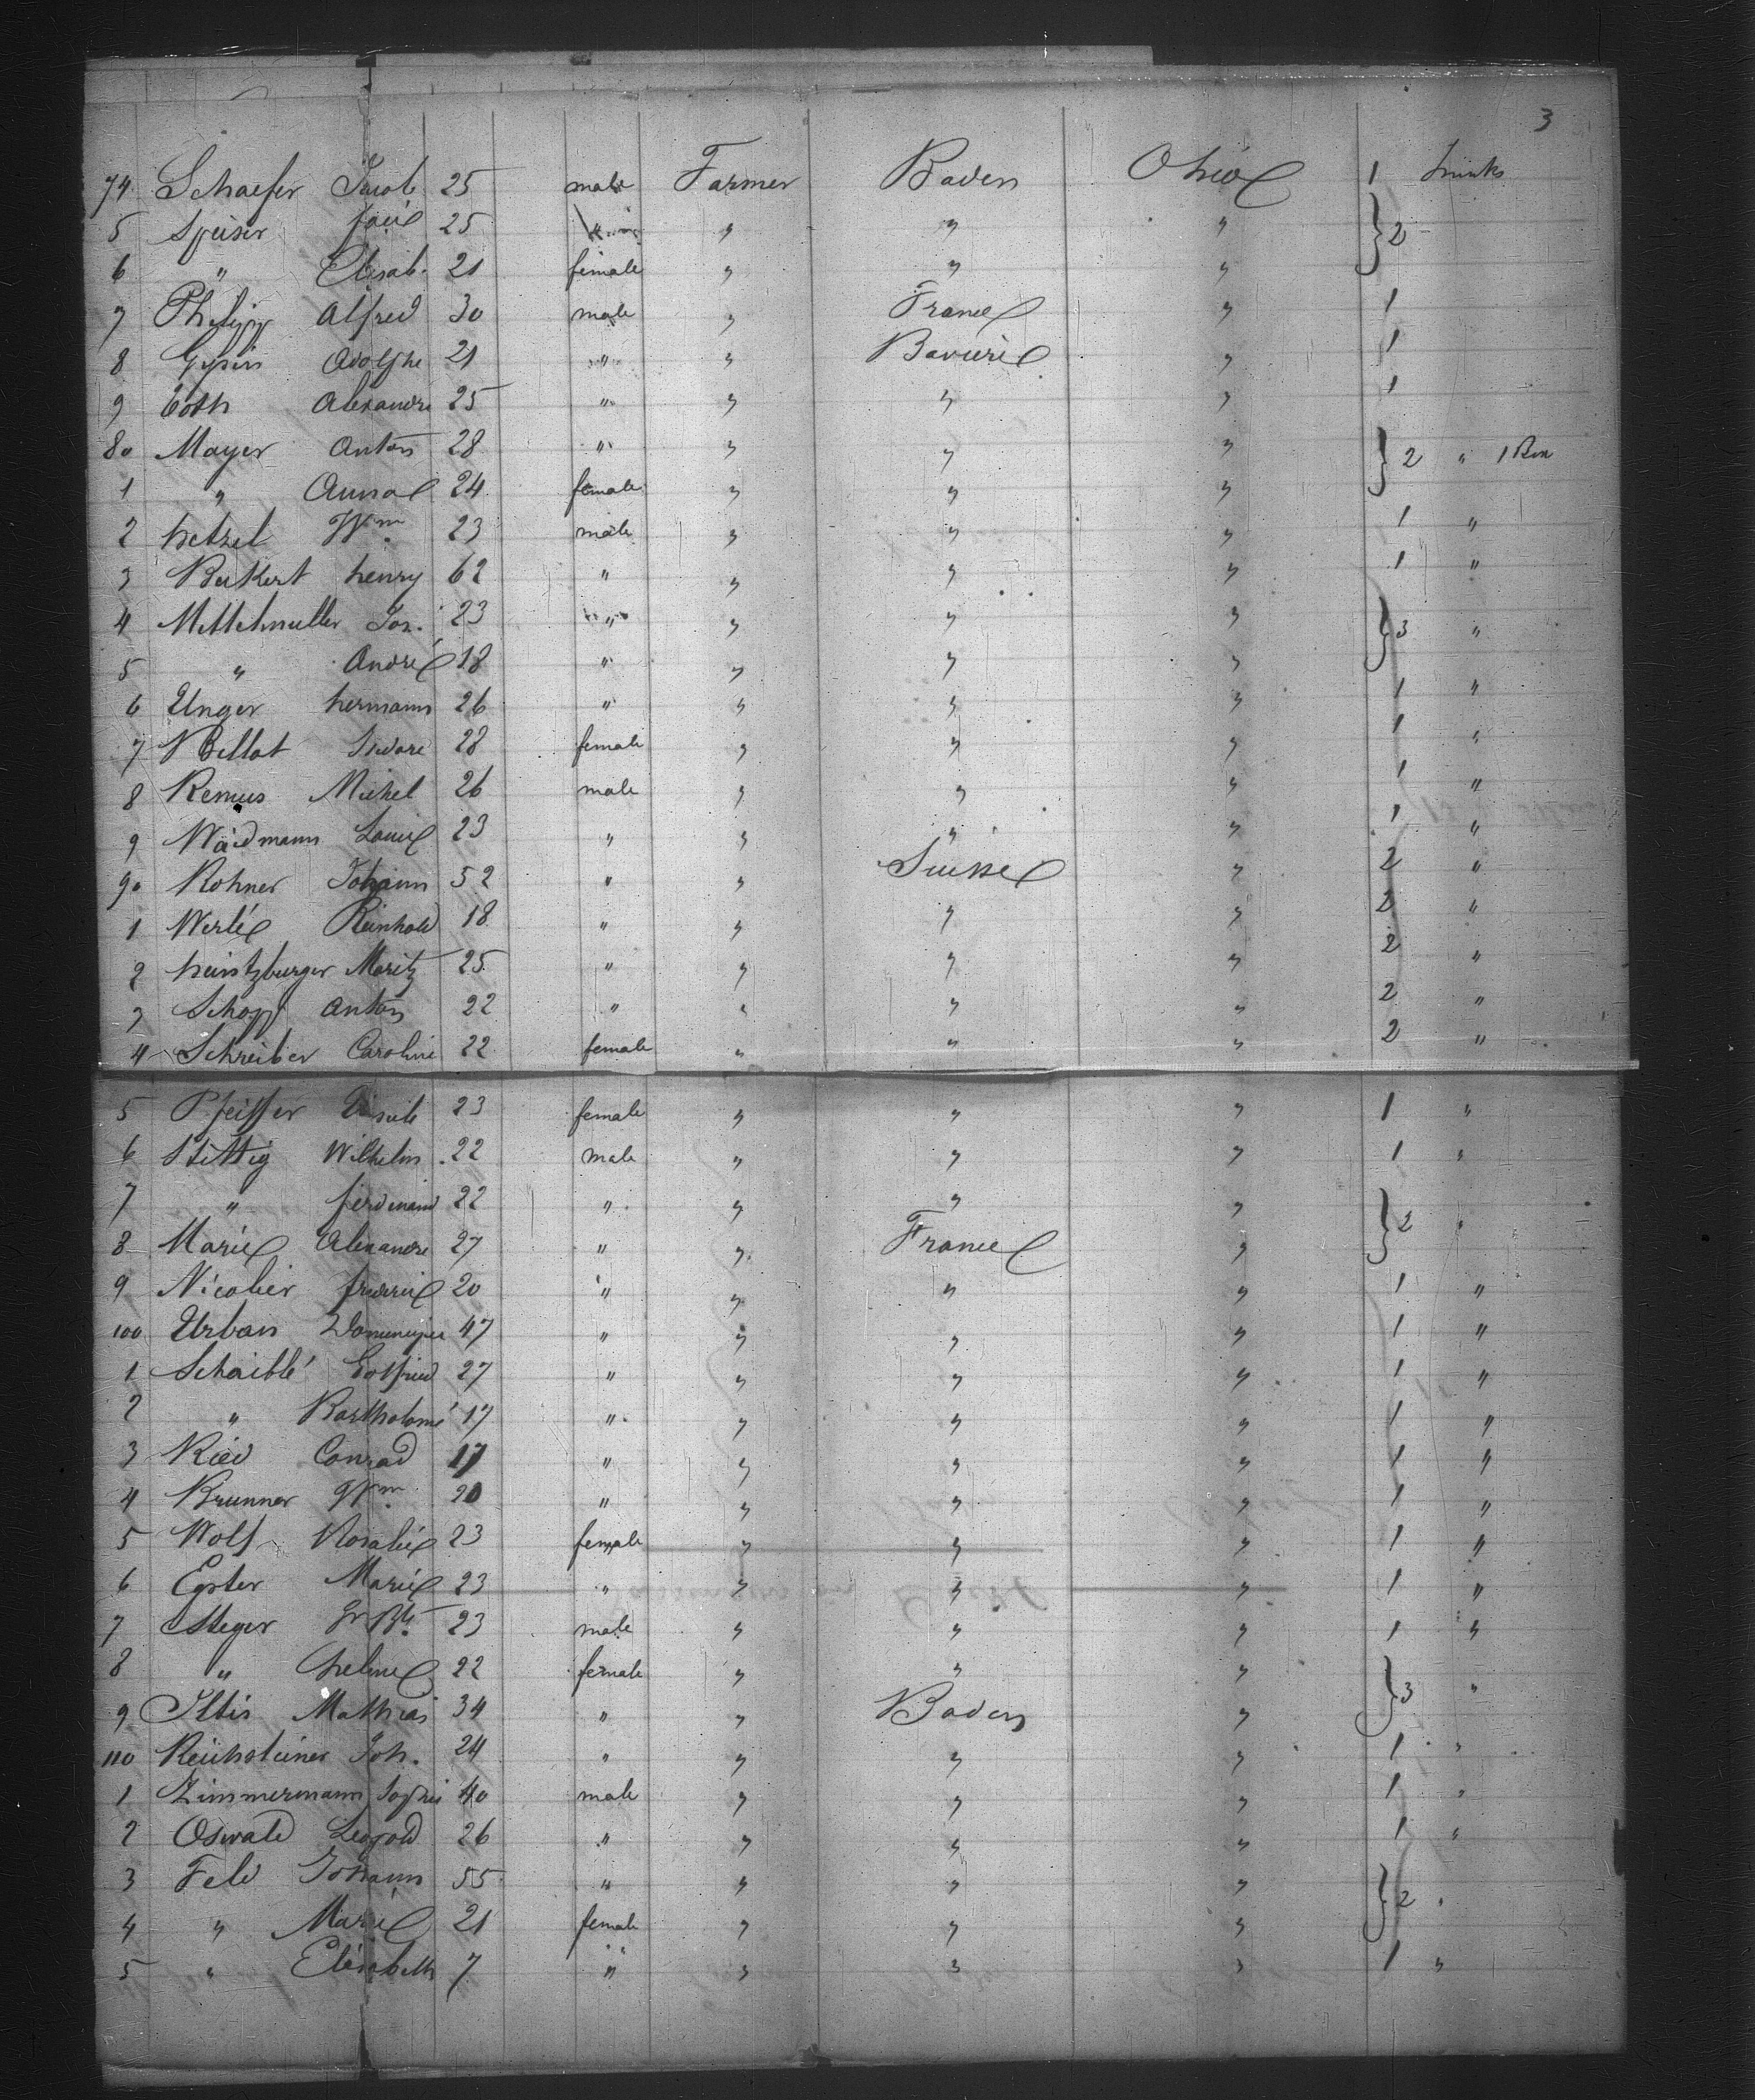 3
74 Schaefer Jacob 25 male Farmer Baden Ohio 1 trunks
5 Speiser 25 " " " " } 2
6 " Elisab. 21 female " " "
7 Philipp Alfred 30 male " France " 1
8 Gysin Adolphe 21 " " Baviere " 1
9 Alexandre 25 " " " " 1
80 Mayer Anton 28 " " " " } 2 " 1 Box
1 " Anna 24 female " " "
2 hetzel Wm 23 male " " " 1 "
3 henry 62 " " " " 1 "
4 Jos. 23 " " " " } 3 "
5 " André 18 " " " "
6 Unger hermann 26 " " " " 1 "
7 28 female " " " 1 "
8 Remus Michel 26 male " " " 1 "
9 Waidmann Louis 23 " " " " 1 "
90 Rohner Johann 52 " " Suisse " 2 "
1 Werlé Reinhold 18 " " " " 2 "
2 heintzburger Moritz 25 " " " " 2 "
3 Schopf Anton 22 " " " " 2 "
4 Schreiber Caroline 22 female " " " 2 "
5 Pfeiffer 23 female " " " 1 "
6 Stettig Wilhelm 22 male " " " 1 "
7 " ferdinand 22 " " " " } 2 "
8 Marie Alexandre 27 " " France "
9 Nicolier frederic 20 " " " " 1 "
100 Urban Dominique 47 " " " " 1 "
1 Schaiblé Gotfried 27 " " " " 1 "
2 " Bartholomé 17 " " " " 1 "
3 Ried Conrad 17 " " " " 1 "
4 Brunner Wm 20 " " " " 1 "
5 Wolf Rosalie 23 female " " " 1 "
6 Egster Marie 23 " " " " 1 "
7 Steger 23 male " " " 1 "
8 " heline 22 female " " " } 3 "
9 Iltis Mathias 34 " " Baden "
110 Reichsteiner Joh. 24 " " " " 1 "
1 Zimmermann Sophie 40 male " " " 1 "
2 Oswald Leopold 26 " " " " 1 "
3 Feld Johann 55 " " " " } 2 "
4 " Marie 21 female " " "
5 " Elisabeth 7 " " " " 1 "